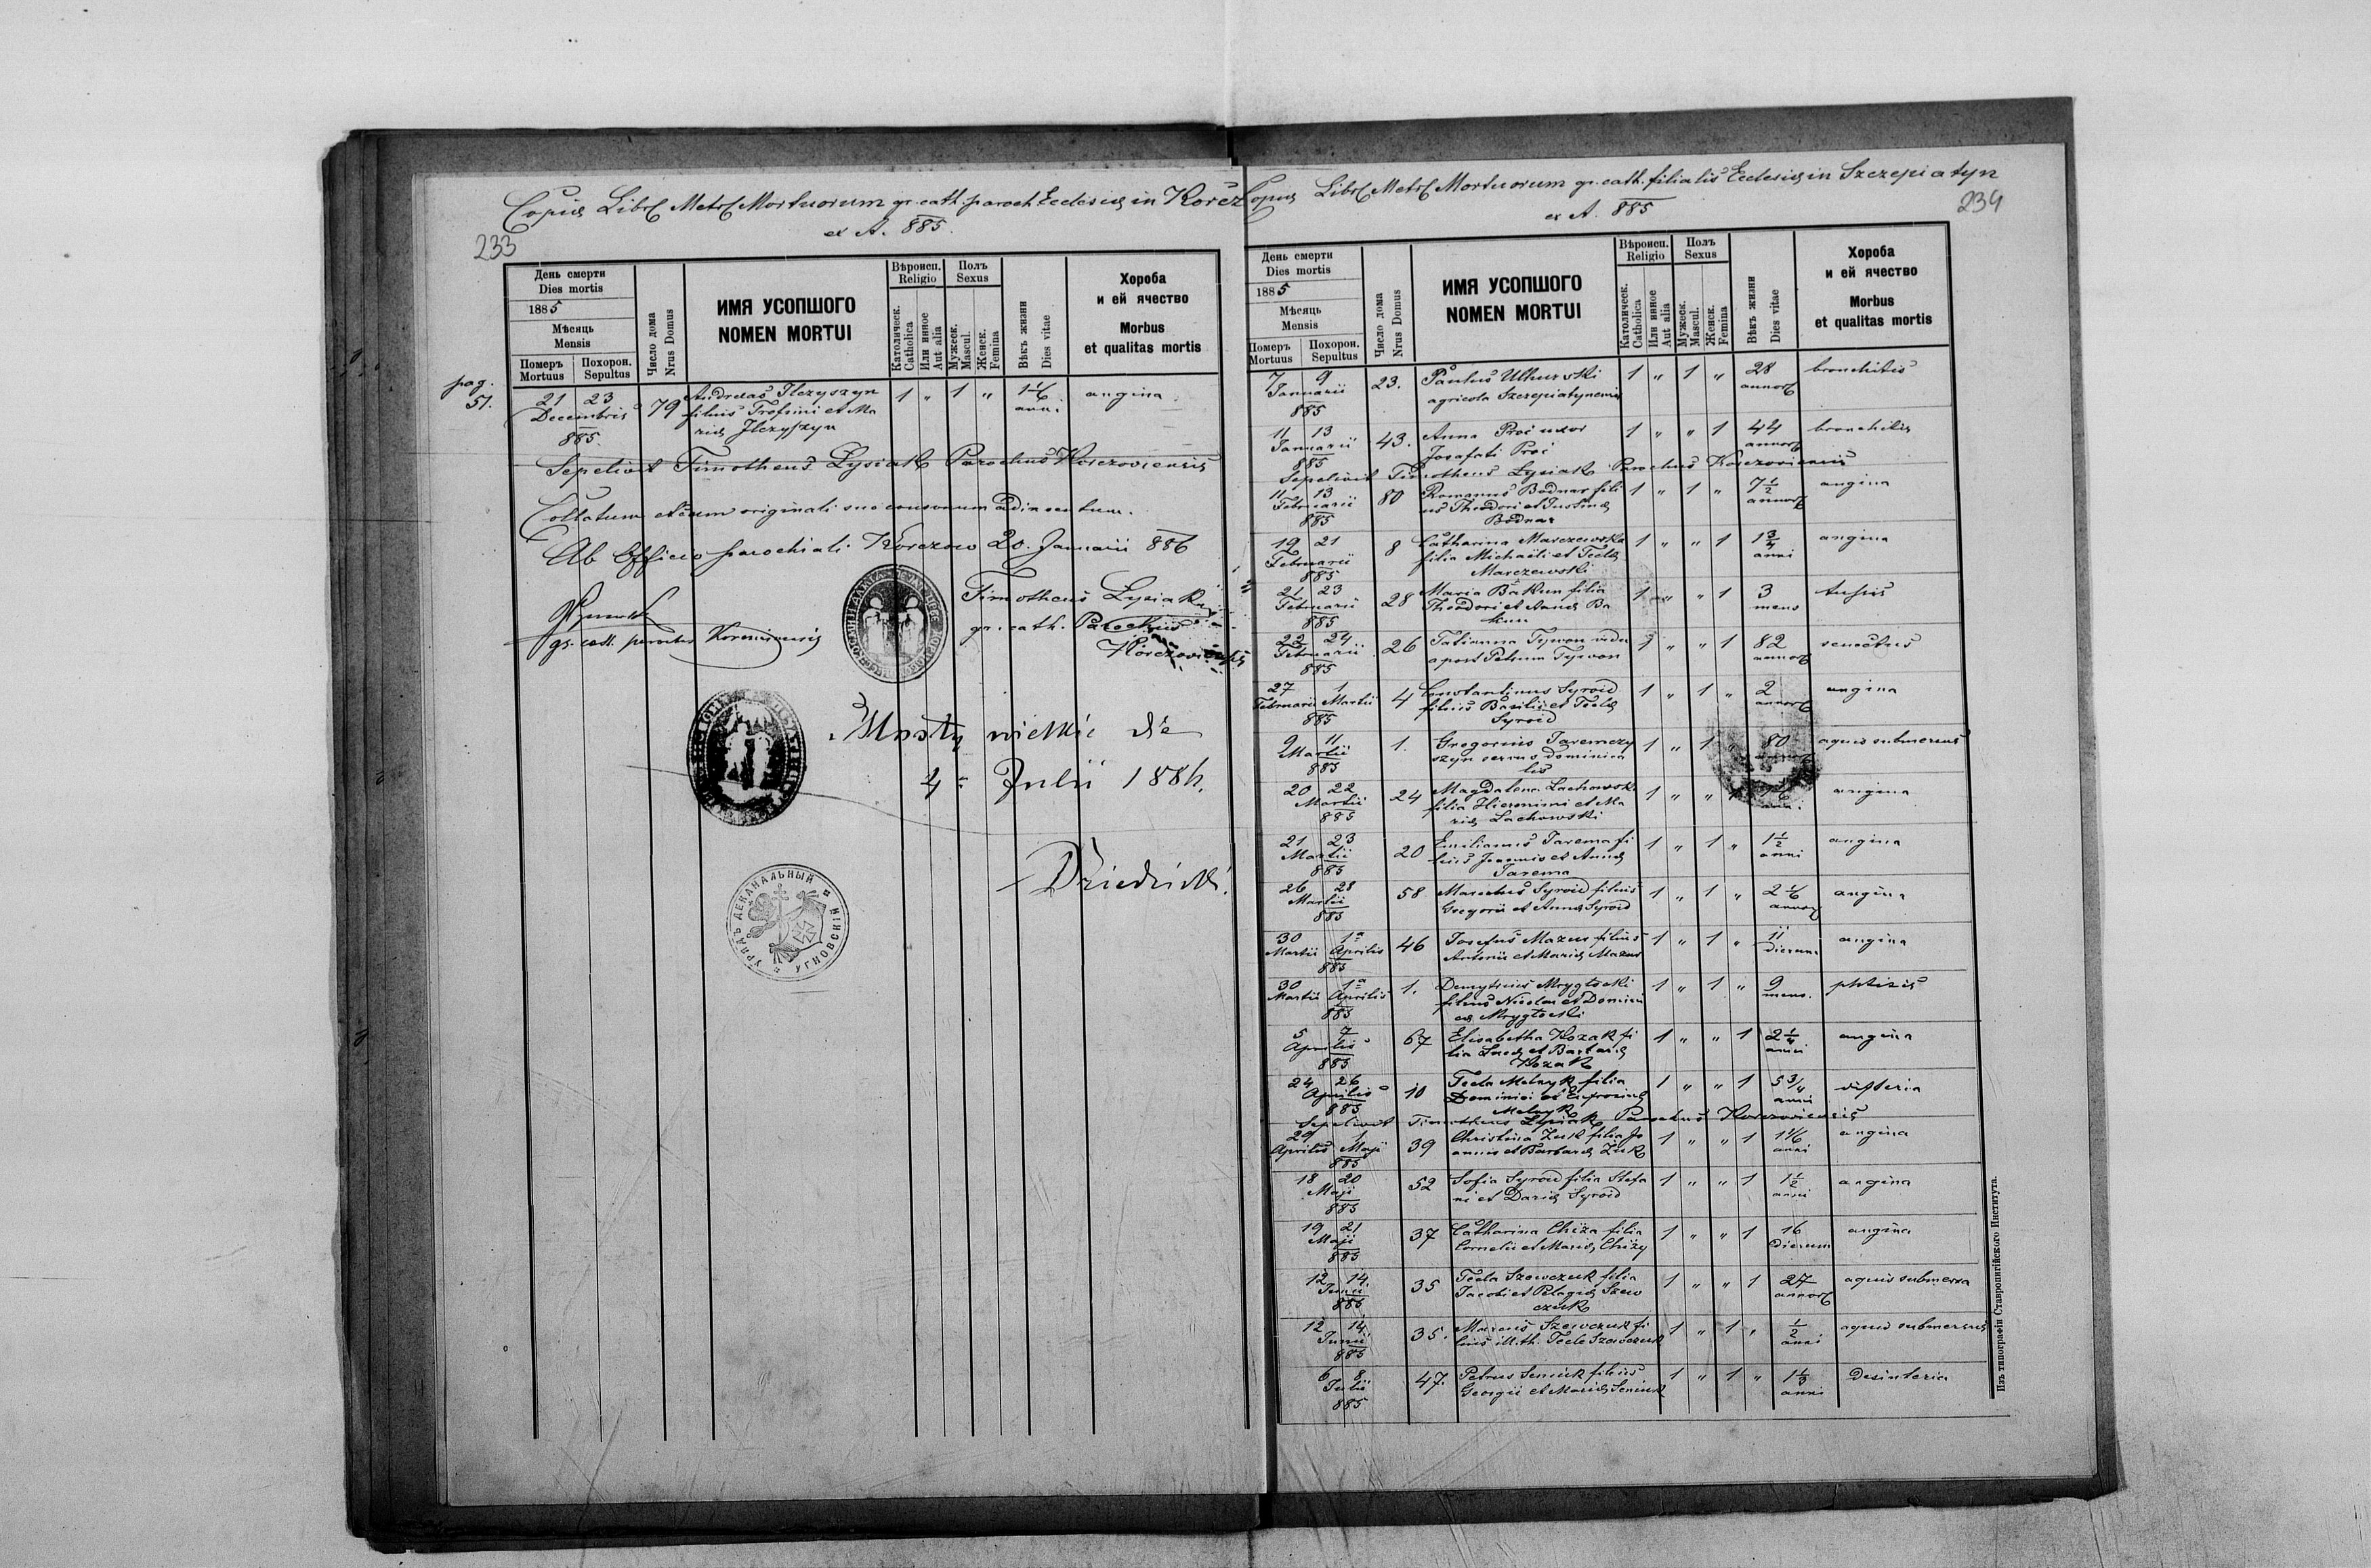 Copia Libr. Metr. Mortuorum gr. cath. paroch. Ecclesiæ in Korcz
ex A. 885.
233
День смерти
Dies mortis
1885
Мѣсяць
Mensis
Померъ
Mortuus
Похорон.
Sepultus
Число дома
Nrus Domus
ИМЯ УСОПШОГО
NOMEN MORTUI
Вѣроисп.
Religio
Католическ.
Catholica
Или инное
Aut alia
Полъ
Sexus
Мужеск.
Mascul.
Женск.
Femina
Вѣкъ жизни
Dies vitae
Хороба
и ей ячество
Morbus
et qualitas mortis
pag.
51.
21 23 79 Andreas Ilczyszyn 1 " 1 " 1 1/6 angina
Decembris filius Trofimi et Ma anni
885. riæ Ilczyszyn
Sepelivit Timotheus Łysiak Parochus Korczoviensis
Collatum et cum originali suo consonum adinventum.
Ab Officio parochiali Korczow 20. Januarii 886
Timotheus Łysiak
gr. cath. Parochus
Korczoviensis
gr. cath. parochus Korczoviensis
Mosty wielkie die
4 Julii 1886.
Dziedzicki
УРЯДЪ ДЕКАНАЛЬНЫЙ
УГНОВСКІЙ
Copia Libr. Metr. Mortuorum gr. cath. filialis Ecclesiæ in Szczepiatyn
ex A. 885
234
День смерти
Dies mortis
1885
Мѣсяць
Mensis
Померъ
Mortuus
Похорон.
Sepultus
Число дома
Nrus Domus
ИМЯ УСОПШОГО
NOMEN MORTUI
Вѣроисп.
Religio
Католическ.
Catholica
Или инное
Aut alia
Полъ
Sexus
Мужеск.
Mascul.
Женск.
Femina
Вѣкъ жизни
Dies vitae
Хороба
и ей ячество
Morbus
et qualitas mortis
7 9 23. Paulus 1 " 1 " 28 bronchitis
Januarii agricola Szczepiatynensis annor.
885
11 13 43. Anna Proć uxor 1 " " 1 44 bronchitis
Januarii Josafati Proć annor.
885
Sepelivit Timotheus Łysiak Parochus Korczoviensis
11 13 80 Romanus Bodnar fili 1 " 1 " 7 1/2 angina
Februarii us Theodori et Justinæ annor.
885 Bodnar
19 21 8 Catharina Marczewska 1 " " 1 1 3/4 angina
Februarii filia Michaeli et Teclæ anni
885 Marczewski
21 23 28 Maria Bakun filia 1 " " 1 3 tussis
Februarii Theodori et Annæ Ba mens
885 kun
22 24 26 Tatianna Tywon vidu 1 " " 1 82 senectus
Februarii a post Petrum Tywon annor.
885
27 1 4 Constantinus Syroid 1 " 1 " 2 angina
Februarii Martii filius Basilii et Teclæ annor.
885 Syroid
9 11 1. Gregorius Jaremczy 1 " 1 " 80 aquis submersus
Martii szyn servus dominica
885 lis
20 22 24 Magdalena Lachowski 1 " " 1 angina
Martii filia Hieronimi et Ma anni
885 riæ Lachowski
21 23 20 Emilianus Jarema fi 1 " 1 " 1 1/2 angina
Martii lius et Annæ anni
885 Jarema
26 28 58 Syroid filius 1 " 1 " 2 1/6 angina
Martii Gregorii et Annæ Syroid annor.
885
30 1a 46 Josefus Mazur filius 1 " 1 " 11 angina
Martii Aprilis Antonii et Mariæ Mazur dierum
885
30 1a 1. Demytrius Mrygłocki 1 " 1 " 9 phtizis
Martii Aprilis filius Nicolai et Domini mens.
885 cæ Mrygłocki
5 7 67 Elisabetha Kozak fi 1 " " 1 2 1/4 angina
Aprilis lia Lucæ et Barbaræ anni
885 Kozak
24 26 10 Tecla Melnyk filia 1 " " 1 5 3/4 difteria
Aprilis Dominici et Eufrosinæ anni
885 Melnyk
Sepelivit Timotheus Łysiak Parochus Korczoviensis
29 1 39 Christina Żuk filia Jo 1 " " 1 1 1/6 angina
Aprilis Maji annis et Barbaræ Żuk anni
885
18 20 52 Sofia Syroid filia Stefa 1 " " 1 1 1/2 angina
Maji ni et Dariæ Syroid anni
885
19 21 37 Catharina Chiża filia 1 " " 1 16 angina
Maji Cornelii et Mariæ Chiży dierum
885
12 14. 35 Tecla Szewczuk filia 1 " " 1 27 aquis submersa
Junii Jacobi et Pelagiæ Szew annor.
885 czuk
12 14. 35. Szewczuk fi 1 " 1 " 1/2 aquis submersus
Junii lius illth. Tecle Szewczuk anni
885
6 8. 47. Petrus Seniuk filius 1 " 1 " 1 1/3 Desinteria
Julii Georgii et Mariæ Seniuk anni
885
Изъ типографіи Ставропигійского Института.